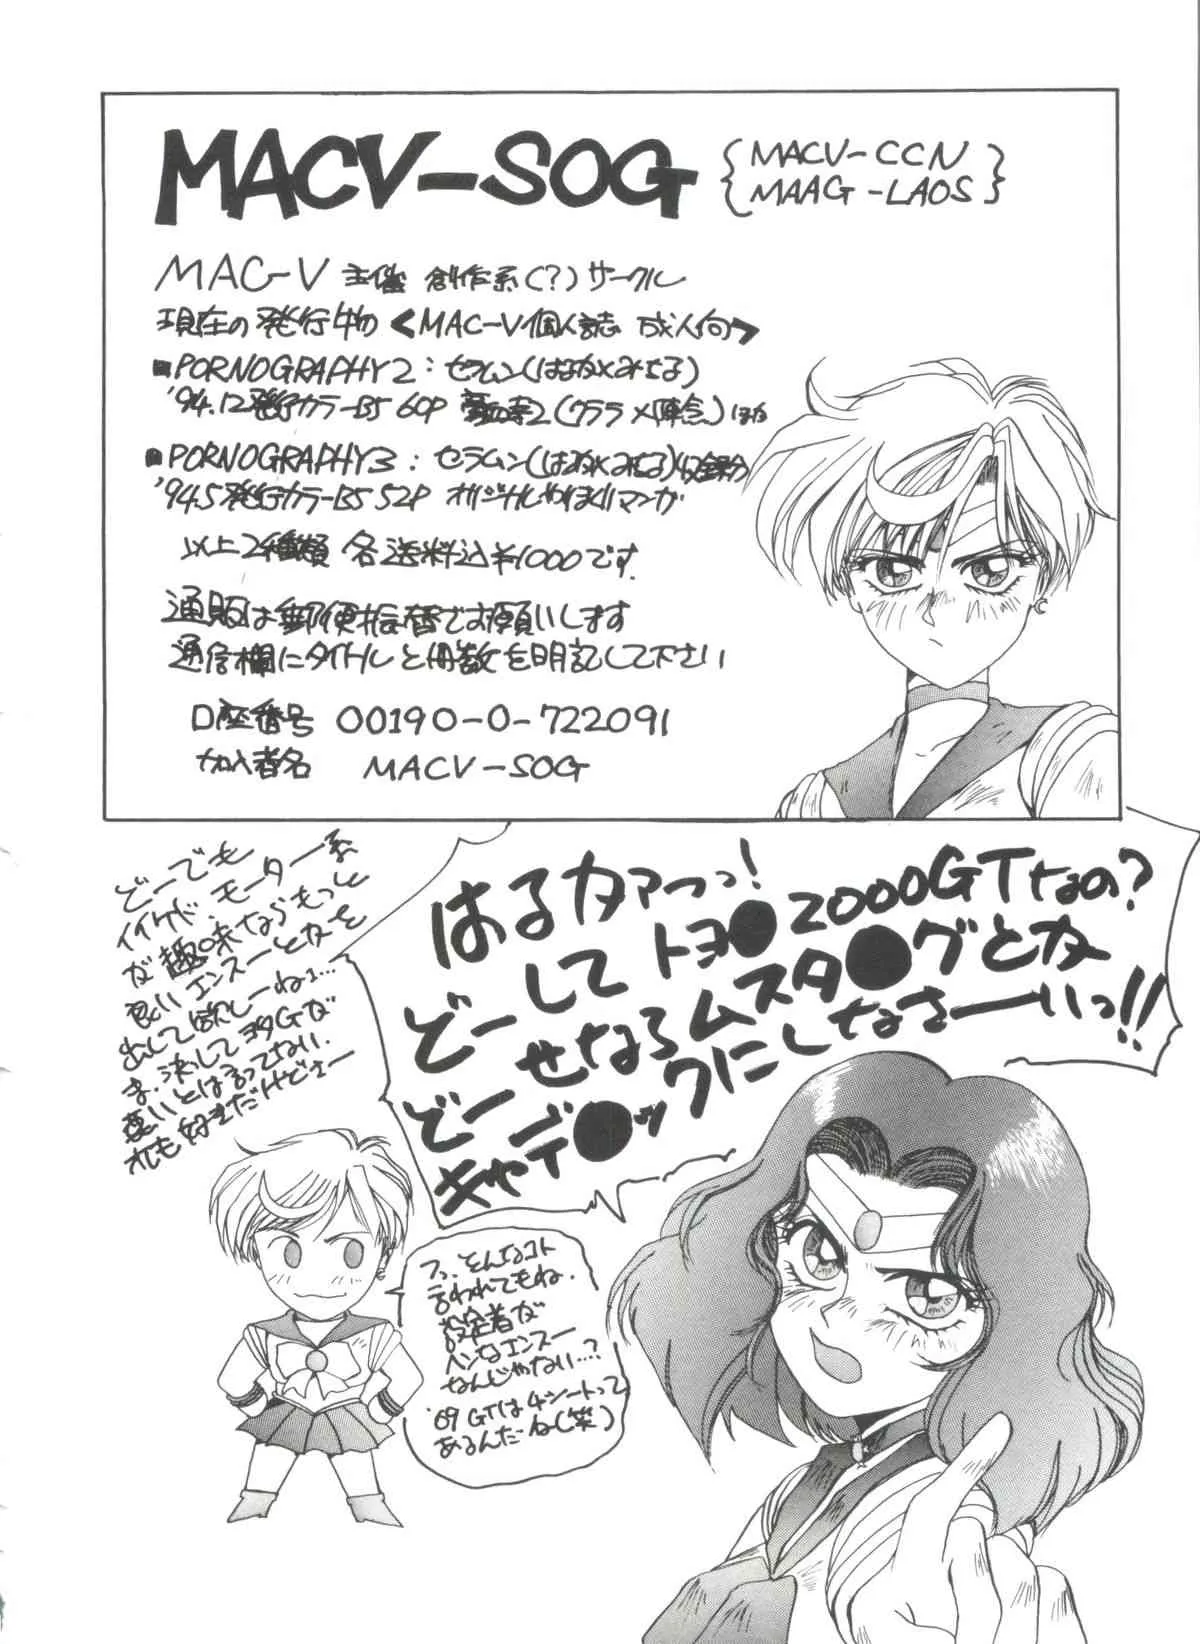 MACV-SOG
MACV-CCN
MAAG-LAOS
MAC-V 主催 創作系(?)サークル
現在の発行物 <MAC-V個人誌 成人向>
■PORNOGRAPHY2:セラムン(はるか×みちる)
'94.12発行カラーB5 60P
■PORNOGRAPHY3:セラムン(はるか×みちる)収録
'94.5発行カラーB5 52P オリジナル マンガ
以上2種類 各送料込¥1000です.
通販は郵便振替でお願いします
通信欄にタイトルと冊数を明記して下さい
口座番号 00190-0-722091
加入者名 MACV-SOG
はるかァーっっ!
どーしてトヨ●2000GTなの?
どーせならムスタ●グとか
キャデ●ックにしなさーいっ!!
どーでも
イイケド、モーター系
が趣味ならもっと
良いエンスーとカーを
出して欲しーねェ…
ま、決してヨタGが
悪いとは言ってない.
オレも好きだけどさー
フッ、そんなコト
言われてもね.
設定者が
ヘンなエンスー
なんじゃない…?
'69 GTは4シートって
あるんだーね(笑)